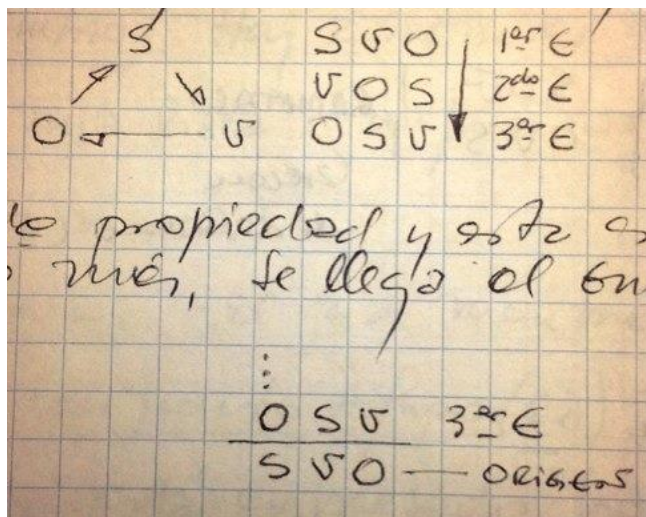 S
S V O 1er E
V O S 2do E
O V O S V 3er E
propiedad y esta es
más, se llega al
O S V 3er E
S V O — ORIGEN